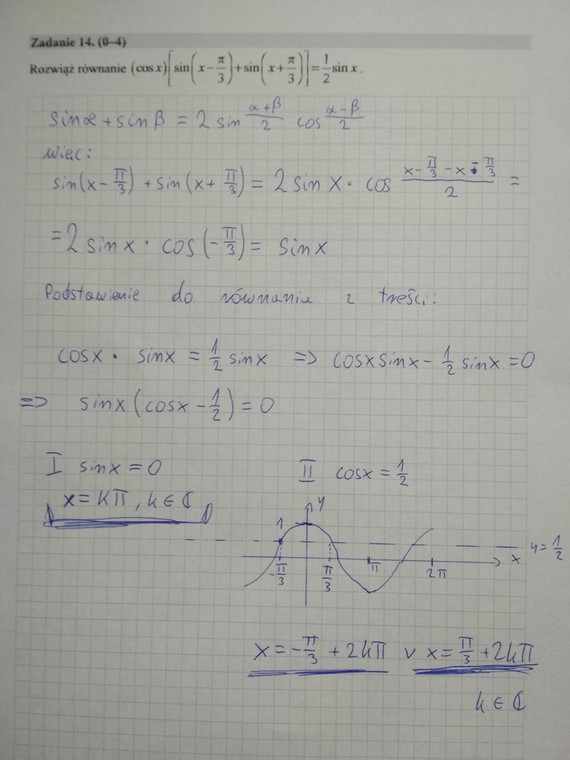 Zadanie 14. (0–4)
Rozwiąż równanie (cos x)[sin(x − π/3) + sin(x + π/3)] = 1/2 sin x.
sinα + sinβ = 2 sin (α+β)/2 cos (α−β)/2
więc:
sin(x − π/3) + sin(x + π/3) = 2 sin x · cos (x − π/3 − x − π/3)/2 =
= 2 sin x · cos(−π/3) = sin x
Podstawienie do równania z treści:
cosx · sinx = 1/2 sinx => cosx sinx − 1/2 sinx = 0
=> sinx (cosx − 1/2) = 0
I sinx = 0 II cosx = 1/2
x = kπ, k ∈ ℂ
y
1
−π/3 π/3 π 2π x y = 1/2
x = −π/3 + 2kπ v x = π/3 + 2kπ
k ∈ ℂ